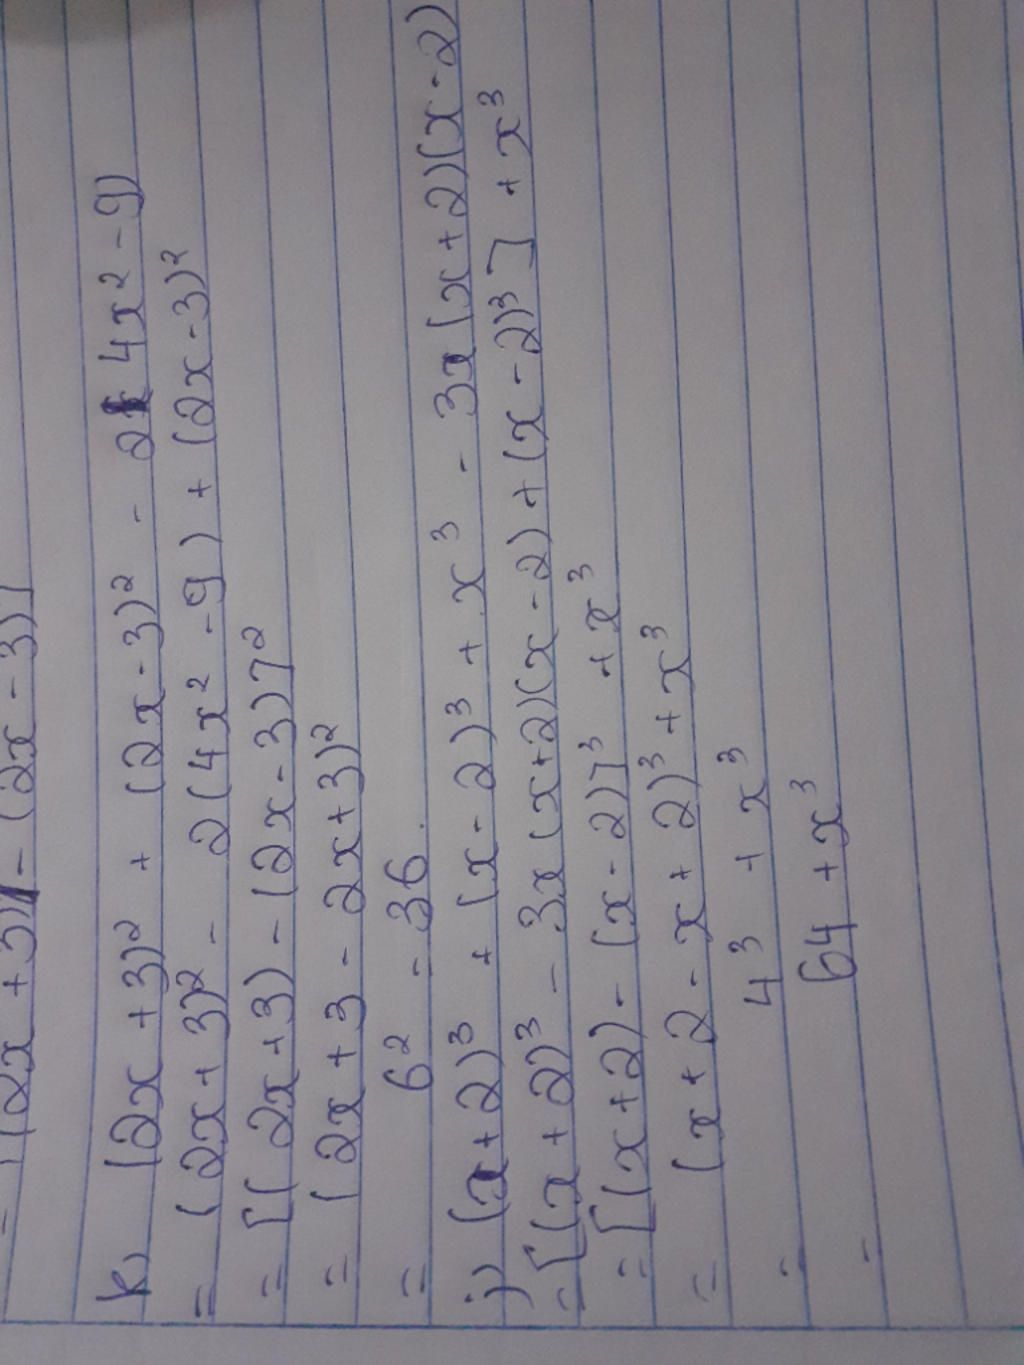 = (2x + 3) - (2x - 3)]
k) (2x + 3)² + (2x - 3)² - 2(4x² - 9)
= (2x + 3)² - 2(4x² - 9) + (2x - 3)²
= [(2x + 3) - (2x - 3)]²
= (2x + 3 - 2x + 3)²
= 6² = 36.
j) (x + 2)³ + (x - 2)³ + x³ - 3x(x + 2)(x - 2)
= [(x + 2)³ - 3x(x + 2)(x - 2) + (x - 2)³] + x³
= [(x + 2) - (x - 2)]³ + x³
= (x + 2 - x + 2)³ + x³
= 4³ + x³
= 64 + x³